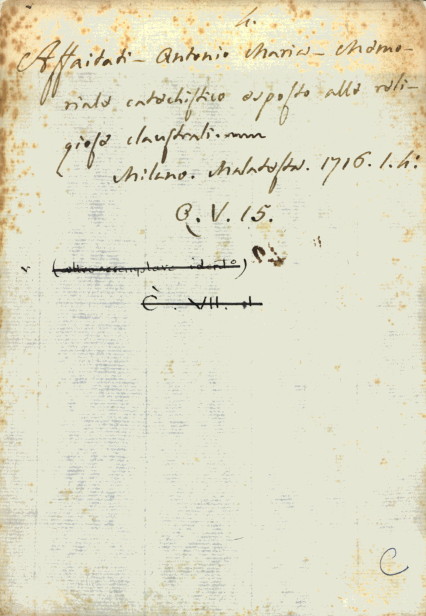 4.
Affaitati - Antonio Maria - Memo-
riale catechistico esposto alle reli-
giose claustrali.
Milano. Malatesta. 1716. 1. 4:
Q. V. 15.
(altro esemplare ident°)
È. VII.
C